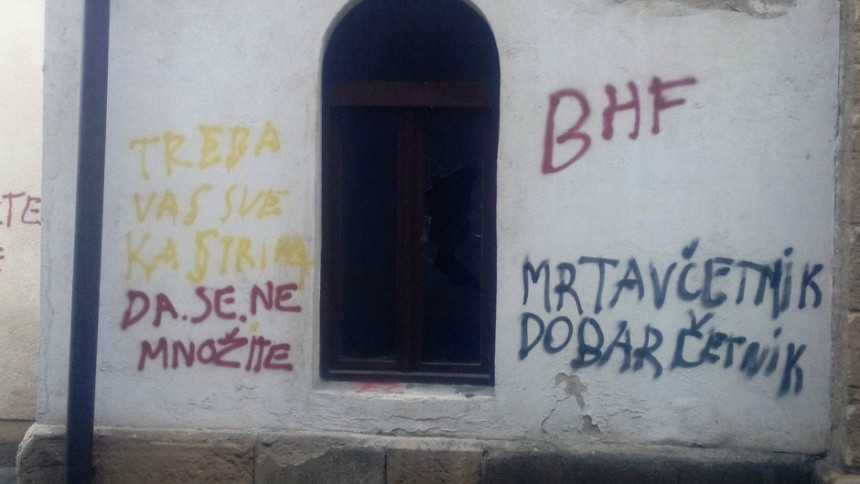 TREBA
VAS SVE
DA.SE.NE
MNOŽITE
BHF
MRTAV ČETNIK
DOBAR ČETNIK